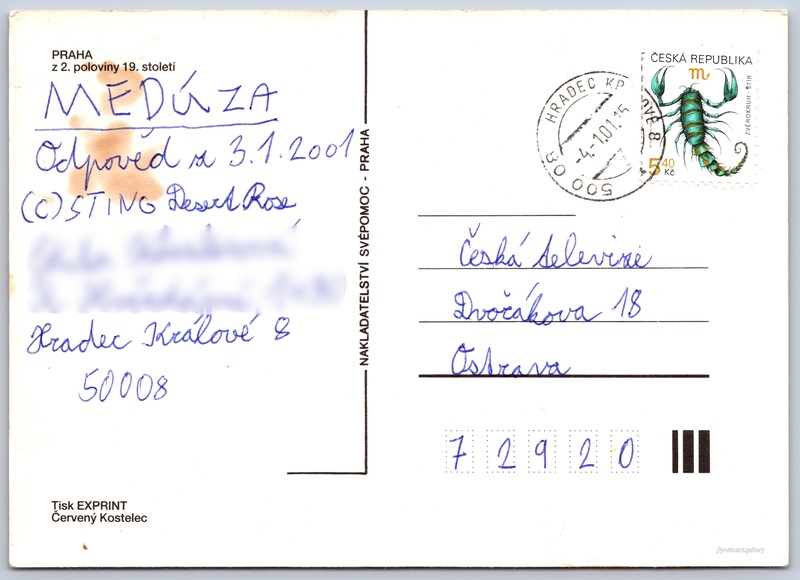 PRAHA
z 2. poloviny 19. století
MEDÚZA
Odpověď z 3.1.2001
(C) STING Desert Rose
Hradec Králové 8
50008
Tisk EXPRINT
Červený Kostelec
NAKLADATELSTVÍ SVÉPOMOC - PRAHA
HRADEC KR LOVÉ 8
-4.-1.01.15
500 08
ČESKÁ REPUBLIKA
ZVĚROKRUH - ŠTÍR
5 40
Kč
Česká televize
Dvořákova 18
Ostrava
72920